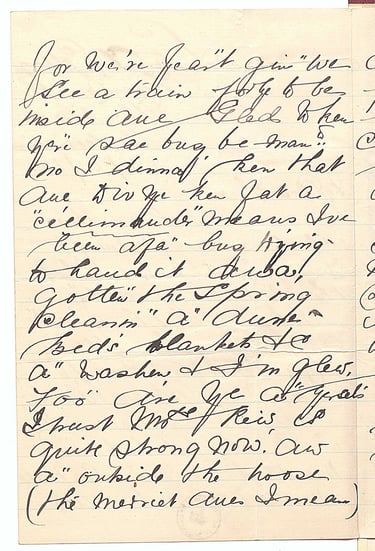 for we're fear't gin" we
see a train for to be
inside ane Glad to ken
ye're sae busy be man"?
no I dinna' ken that
ane Div ye ken fat a
means I've
been afa" busy trying
to haud it awa,
gotten" the Spring
cleanin" a" dune
beds blankets &c
a" washen & I'm glew,
Foo" are ye a" yersels
I trust Mrs Keir is
quite strong now. aw
a" outside the hoose
(the merriet anes I mean)